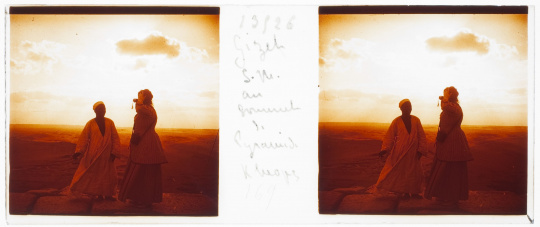 13926
Gizeh
S.M.
au
sommet
d.
Pyramid
Kheops